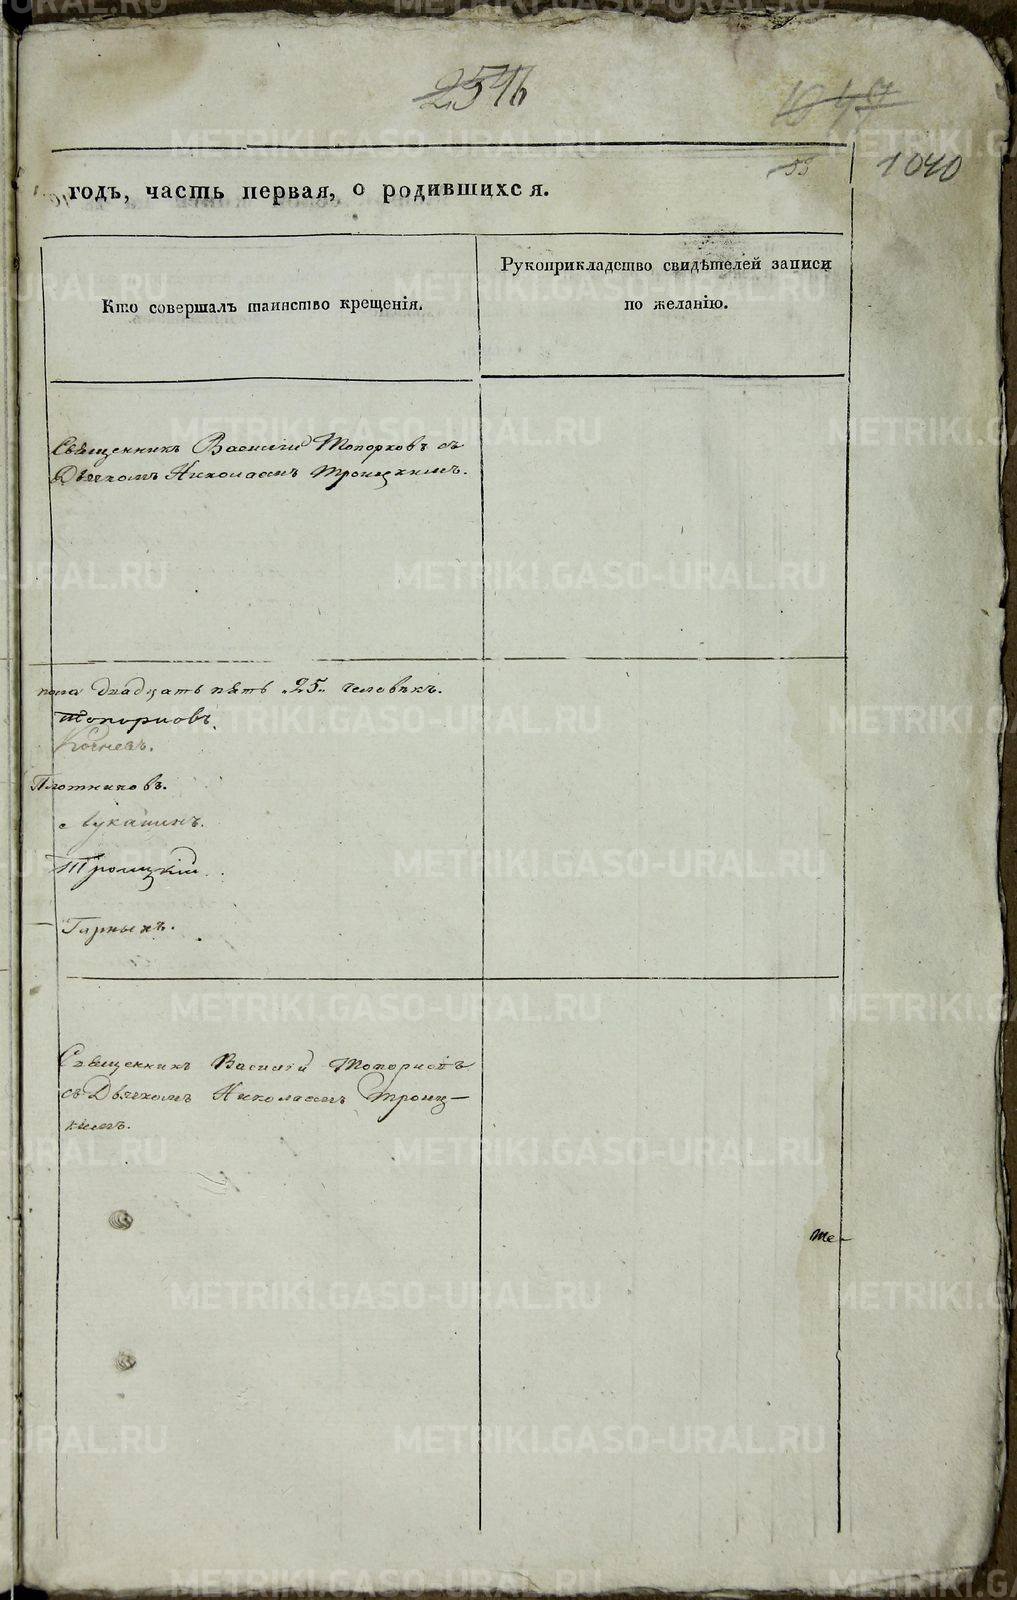 2546
1047
55
1040
годъ, часть первая, о родившихся.
Кто совершалъ таинство крещенія.
Рукоприкладство свидѣтелей записи
по желанію.
Священникъ Василій Топорковъ съ
Дьячкомъ Николаемъ Троицкимъ.
пола двадцать пять „25„ человѣкъ.
Топорковъ.
Кочневъ.
Плотниковъ.
Лукашинъ.
Троицкій
Горныхъ.
Священникъ Василій Топорковъ
съ Дьячкомъ Николаемъ Троиц-
кимъ.
те-
METRIKI.GASO-URAL.RU